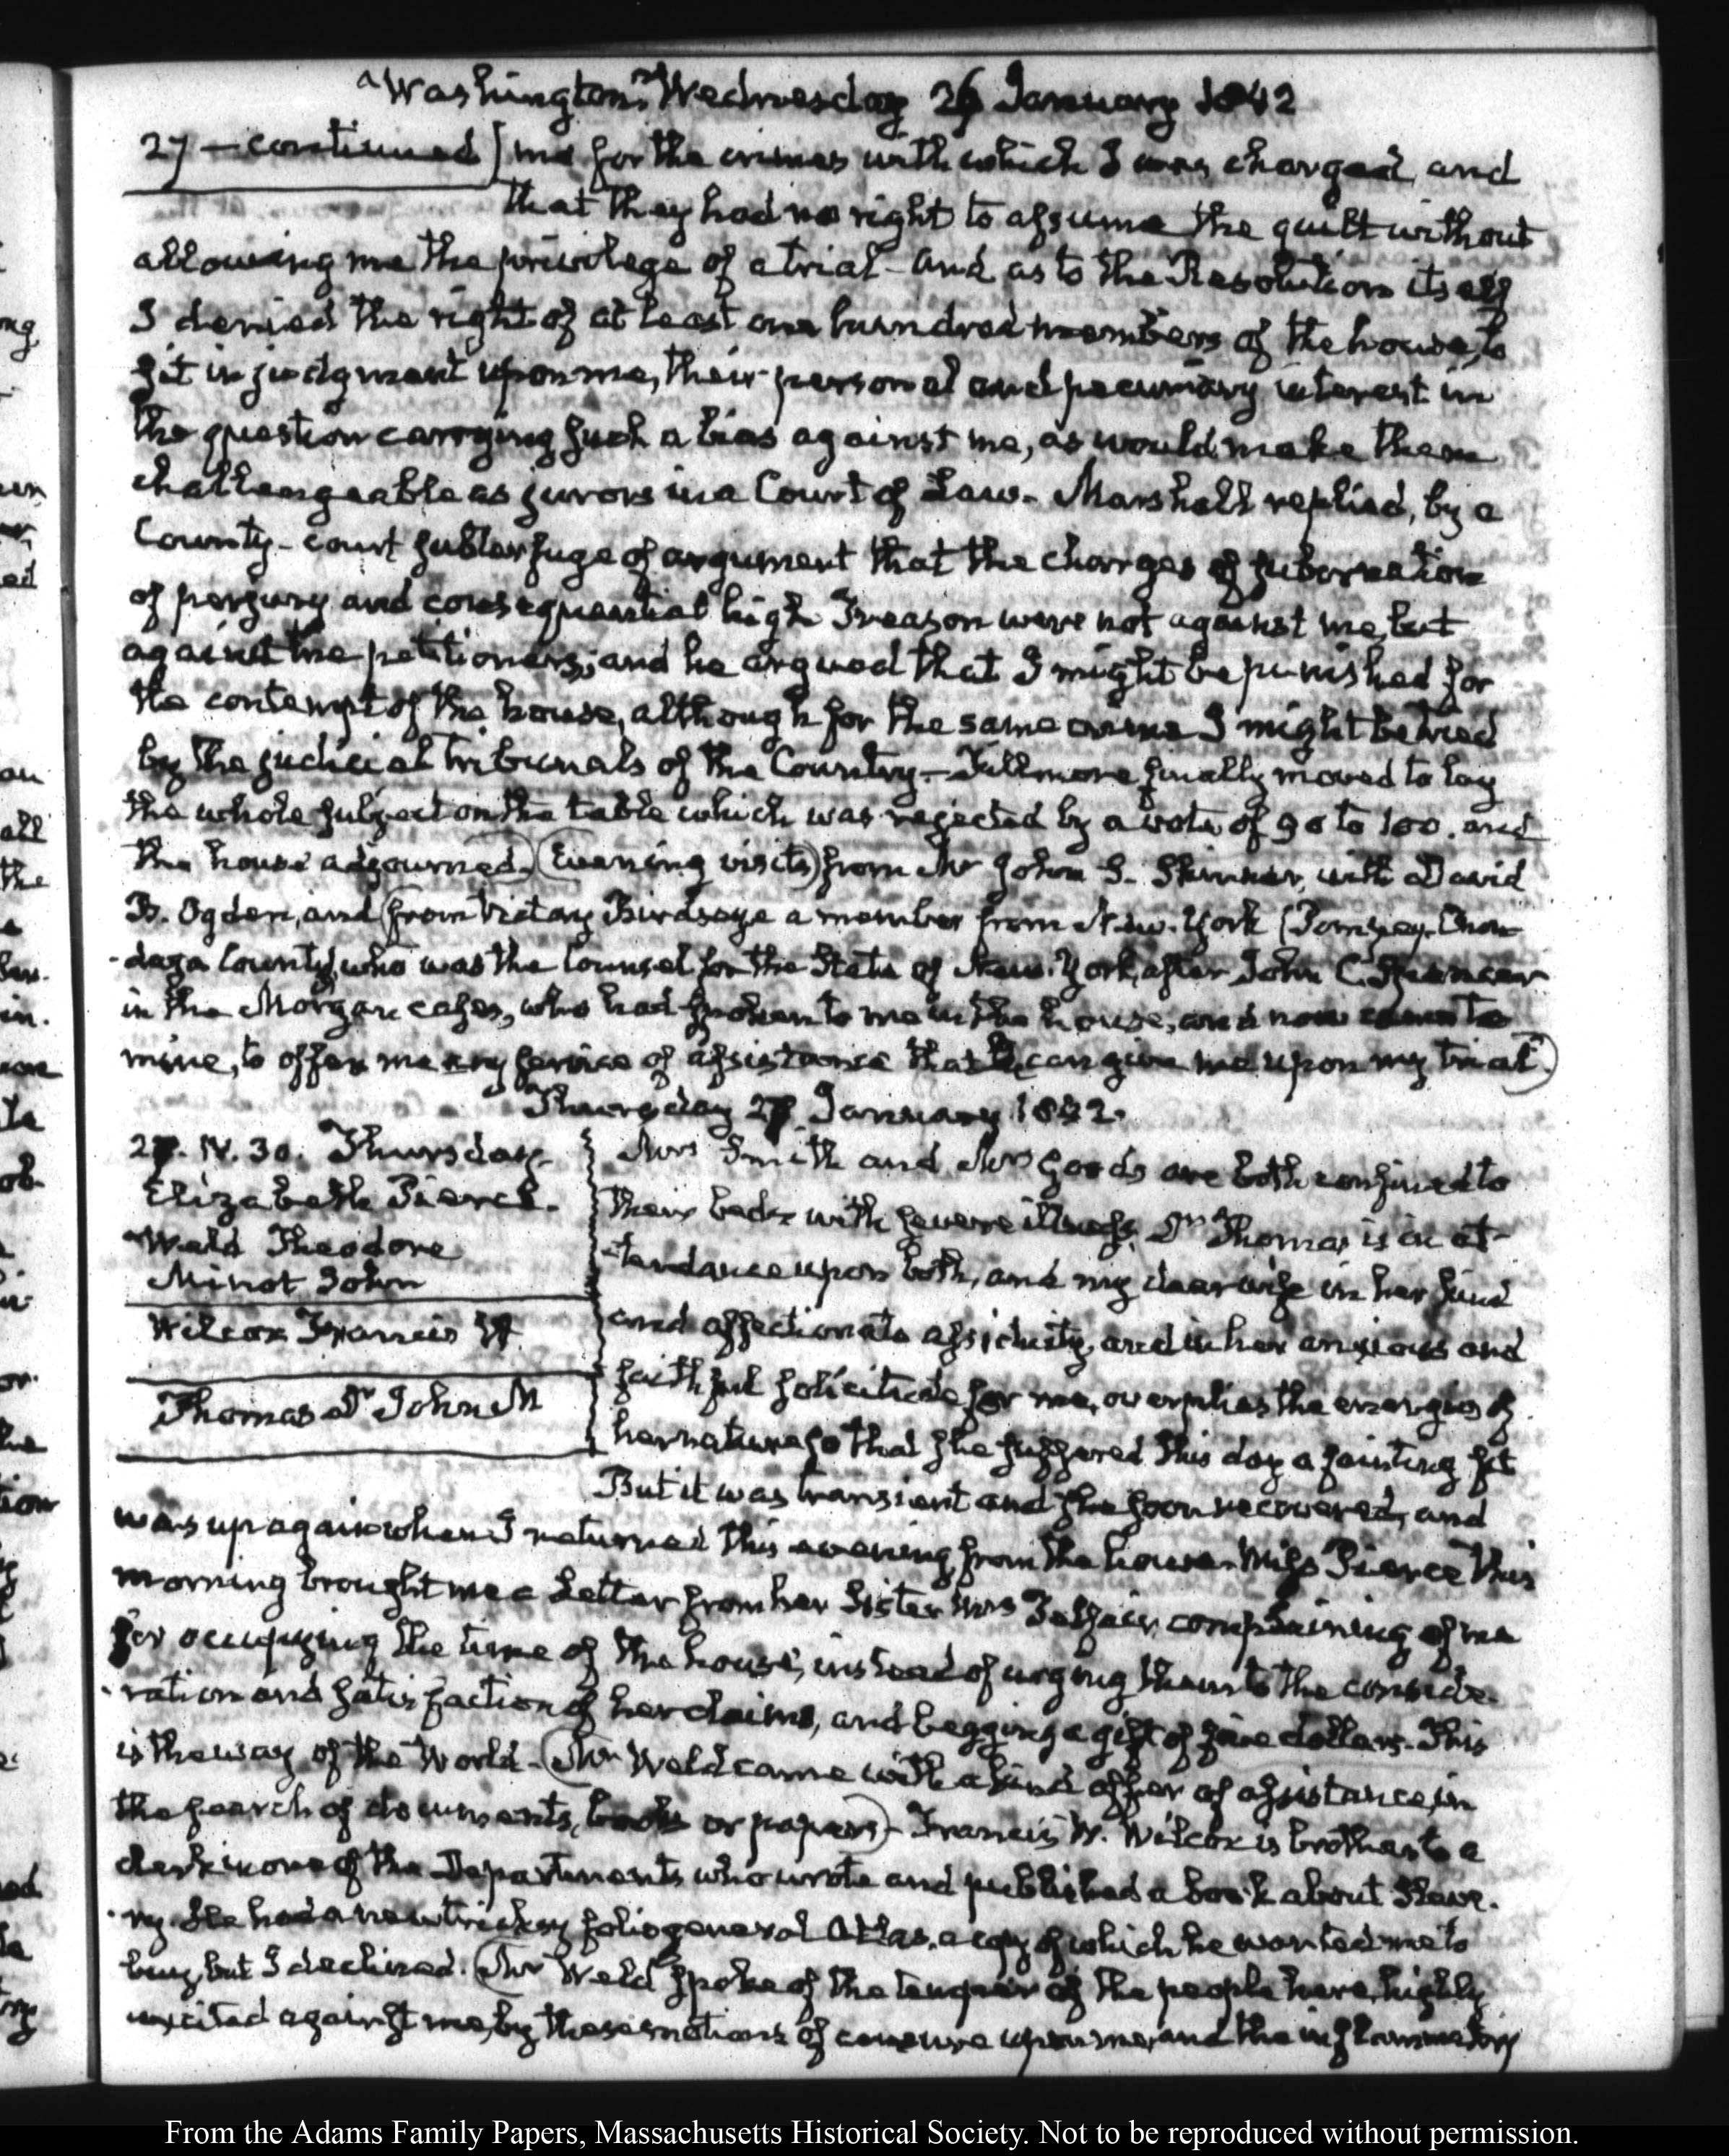 Washington Wednesday 26 January 1842
27 — continued] me for the crimes with which I was charged, and
that they had no right to assume the guilt without
allowing me the privilege of a trial - and as to the Resolution itself
I denied the right of at least one hundred members of the house, to
sit in judgment upon me, their personal and pecuniary interest in
the question carrying such a bias against me, as would make them
challengeable as jurors in a Court of Law - Marshall replied, by a
County-court subterfuge of argument that the charges of subornation
of perjury and consequential high Treason were not against me, but
against the petitioners; and he argued that I might be punished for
the contempt of the house, although for the same crime I might be tried
by the judicial tribunals of the Country - Fillmore finally moved to lay
the whole subject on the table which was rejected by a vote of 90 to 100. and
the house adjourned. (Evening visits) from Mr John S. Skinner, with David
B. Ogden, and (from Victory Birdseye a member from New-York (Pompey. Onon-
-daga County) who was the Counsel for the State of New-York, after John C. Spencer
in the Morgan cases, who had spoken to me in the house, and now came to
mine, to offer me any service of assistance that he can give me upon my trial.)
Thursday 27. January 1842.
27. IV. 30. Thursday
Elizabeth Pierce.
Weld Theodore
Minot John
Wilcox Francis W.
Thomas Dr John M
Mrs Smith and Mrs Goods are both confined to
their beds with severe illness. Dr Thomas is in at-
-tendance upon both, and my dear wife in her kind
and affectionate assiduity, and in her anxious and
faithful solicitude for me, overplies the energies of
her nature so that she suffered this day a fainting fit
But it was transient and she soon recovered, and
was up again when I returned this evening from the house. Miss Pierce this
morning brought me a Letter from her Sister Mrs Telfair, complaining of me
for occupying the time of the house, instead of urging them to the conside-
-ration and satisfaction of her claims, and begging a gift of five dollars. This
is the way of the World - (Mr Weld came with a kind offer of assistance, in
the search of documents, books or papers) - Francis W. Wilcox is brother to a
clerk in one of the Departments who wrote and published a book about Slave-
-ry. He had a new folio general Atlas, a copy of which he wanted me to
buy, but I declined. (Mr Weld spoke of the temper of the people here, highly
excited against me, by these motions of censure upon me, and the inflammatory
From the Adams Family Papers, Massachusetts Historical Society. Not to be reproduced without permission.